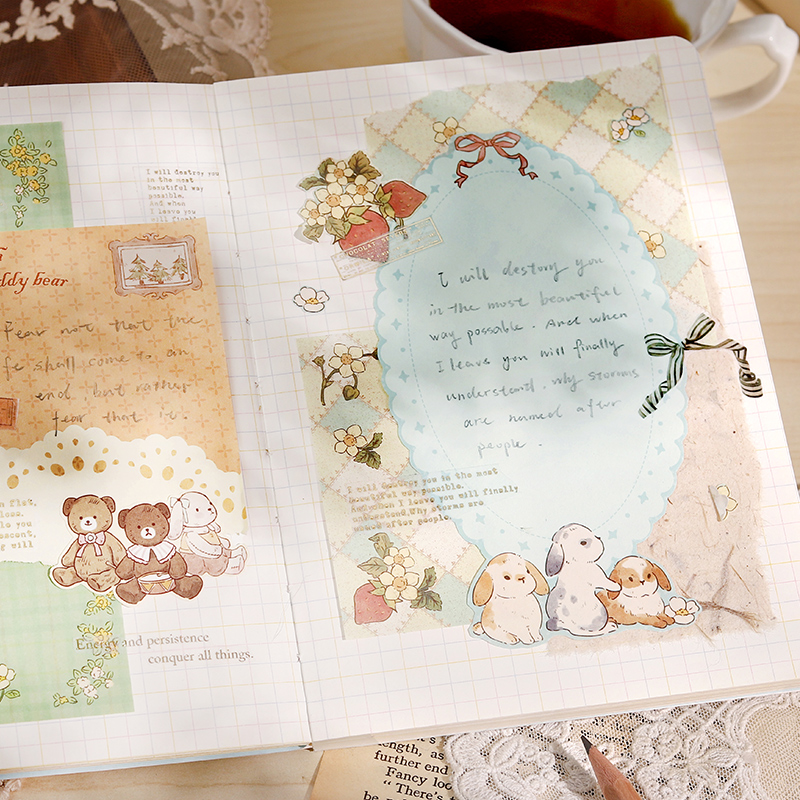 I will destroy you
in the most
beautiful way
possible.
And when
I leave you
will finally
ddy bear
Fear not that the
fe shall come to an
end, but rather
fear that it.
n flat.
loss.
le you
ascent,
ng will
Energy and persistence
conquer all things.
I will destory you
in the most beautiful
way possable. And when
I leave you will finally
understand. why storoms
are named after
people.
I will destroy you in the most
beautiful way possible.
And when I leave you will finally
understand.Why storms are
named after people.
length, as
further end
Fancy loo
"There's
be